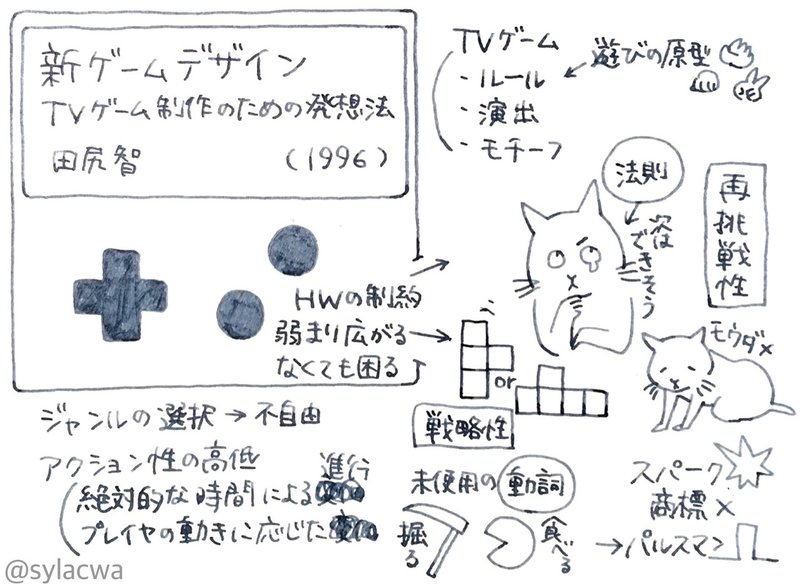 新ゲームデザイン
TVゲーム制作のための発想法
田尻智 (1996)
TVゲーム
・ルール
・演出
・モチーフ
遊びの原型
法則
次は
できそう
再挑戦性
HWの制約
弱まり広がる
なくても困る
モウダメ
or
戦略性
ジャンルの選択→不自由
アクション性の高低
進行
絶対的な時間による
プレイヤの動きに応じた
未使用の動詞
掘る
食べる
スパーク
商標×
→パルスマン
@sylacwa